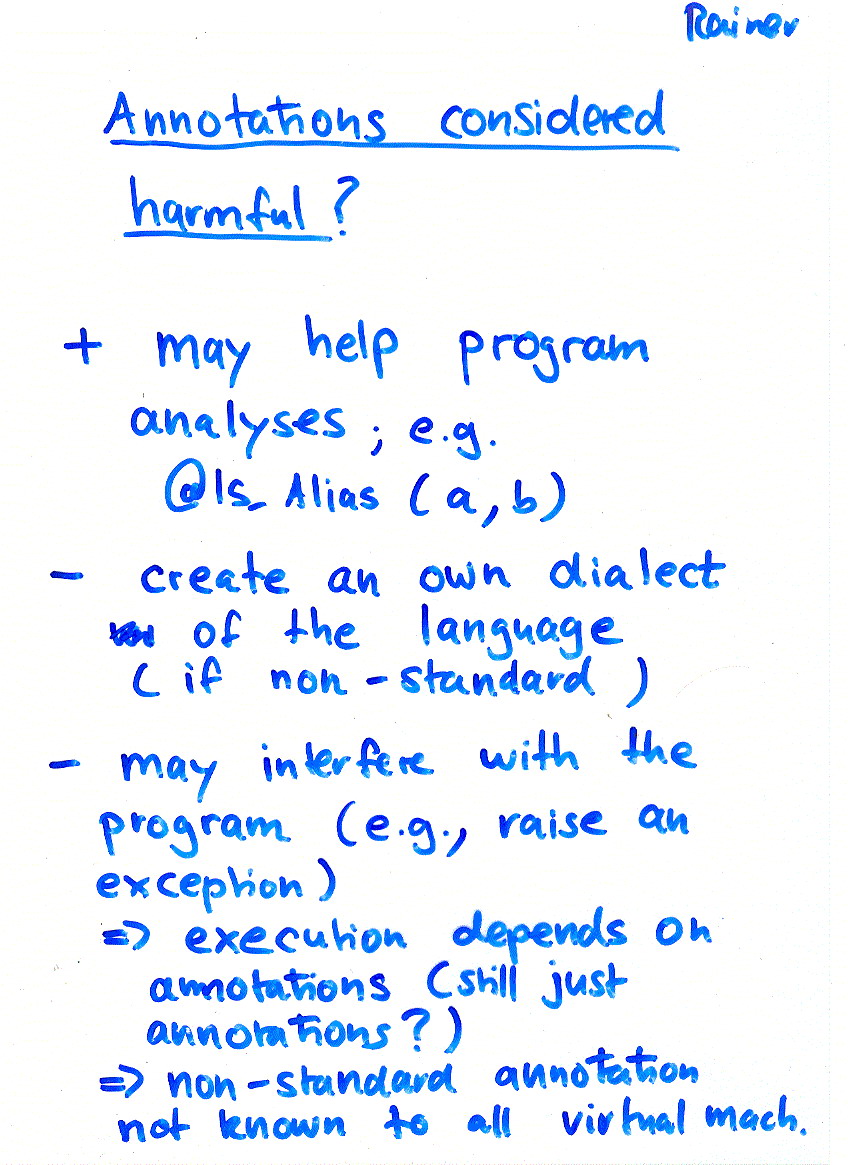 Rainer
Annotations considered
harmful?
+ may help program
analyses; e.g.
@Is_Alias (a,b)
- create an own dialect
of the language
(if non-standard)
- may interfere with the
program (e.g., raise an
exception)
=> execution depends on
annotations (still just
annotations?)
=> non-standard annotation
not known to all virtual mach.